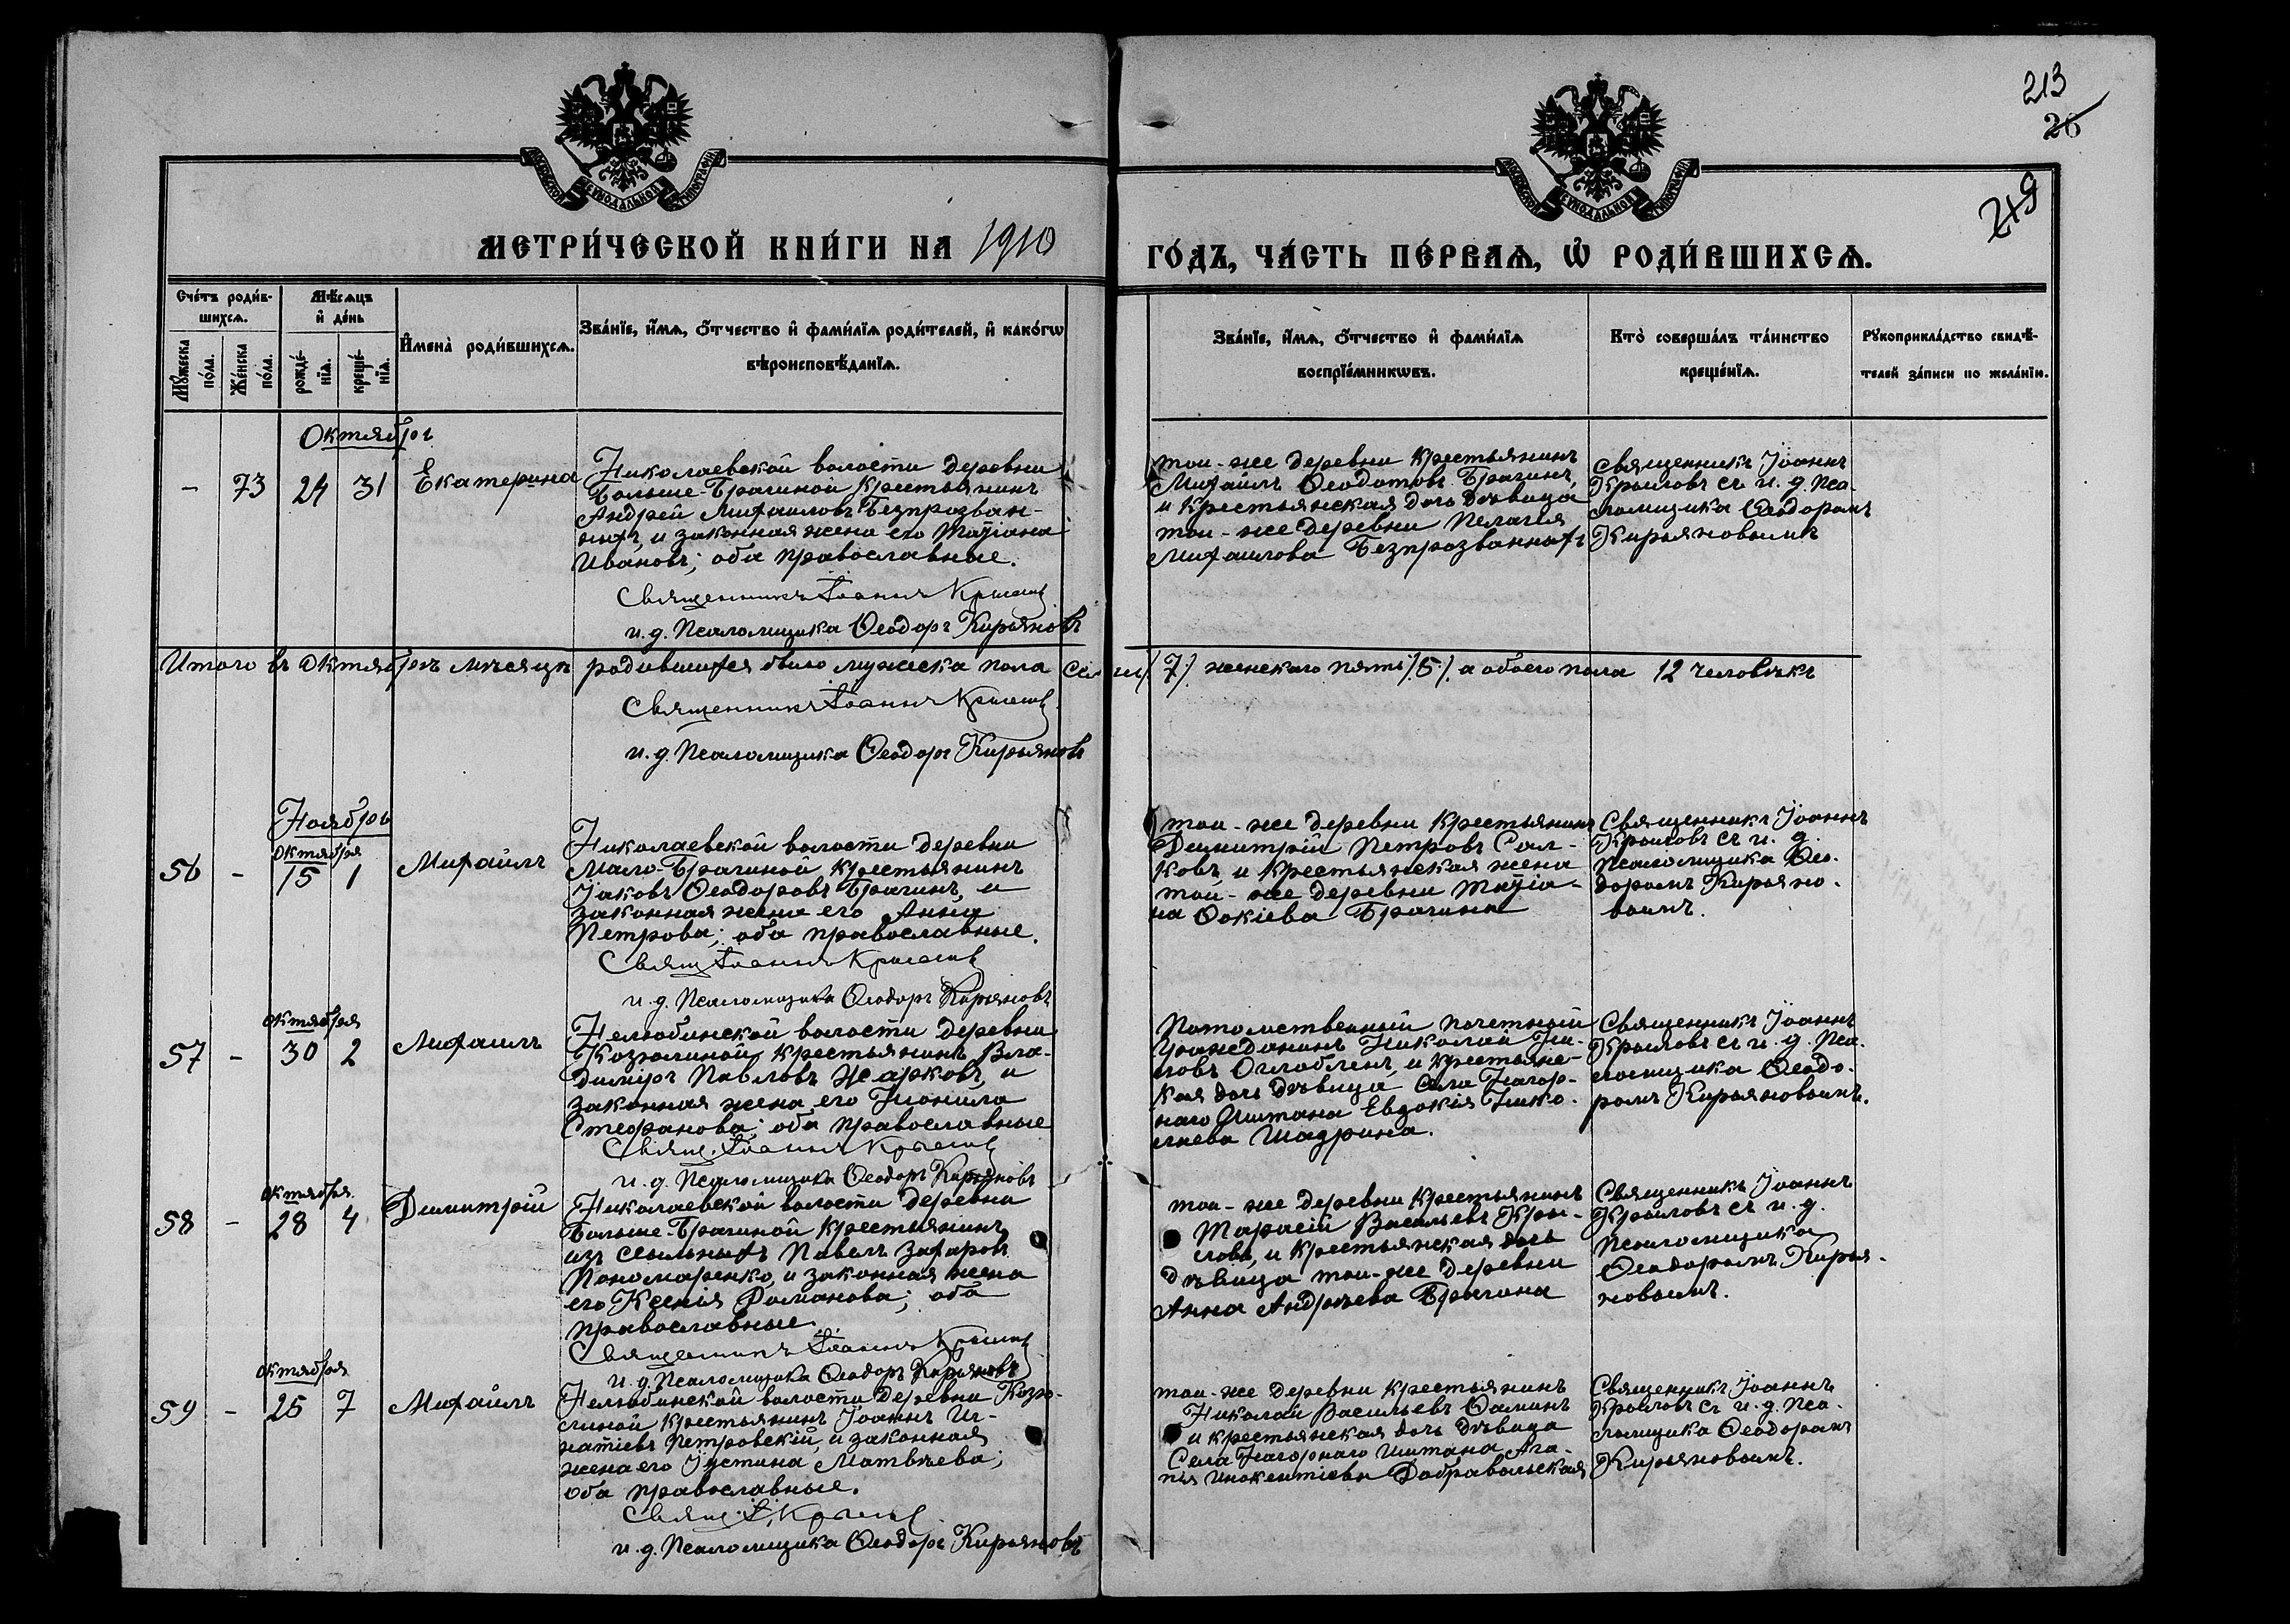 213
26
249
МОСКОВСКОЙ СѴНОДАЛЬНОЙ ТИПОГРАФІИ
МОСКОВСКОЙ СѴНОДАЛЬНОЙ ТИПОГРАФІИ
МЕТРИ́ЧЕСКОЙ КНИ́ГИ НА 1910
ГО́ДЪ, ЧА́СТЬ ПЕ́РВАѦ, Ѡ҆ РОДИ́ВШИХСѦ.
Сче́тъ роди́в-
шихсѧ.
Мѣ́сѧцъ
и҆ де́нь
Мꙋ́жеска
по́ла.
Же́нска
по́ла.
рожде́-
нїѧ.
креще́-
нїѧ.
И҆мена̀ роди́вшихсѧ.
Зва́нїе, и҆́мѧ, ѻ҆́тчество и҆ фами́лїѧ роди́телей, и҆ како́гѡ
вѣроисповѣ́данїѧ.
Зва́нїе, и҆́мѧ, ѻ҆́тчество и҆ фами́лїѧ
воспрїе́мникѡвъ.
Кто̀ соверша́лъ та́инство
креще́нїѧ.
Рꙋкоприкла́дство свидѣ́-
телей за́писи по жела́нїю.
Октябрь
- 73 24 31 Екатерина
Николаевской волости деревни
Больше-Брагиной крестьянинъ
Андрей Михаиловъ Безпрозван-
ныхъ, и законная жена его Татіана
Иванова; оба православные.
Священникъ Іоаннъ Крыловъ
и. д. Псаломщика Ѳеодоръ Кирьяновъ
той-же деревни крестьянинъ
Михаилъ Ѳеодотовъ Брагинъ,
и крестьянская дочь дѣвица
той-же деревни Пелагія
Михаилова Безпрозванныхъ
Священникъ Іоаннъ
Крыловъ съ и. д. Пса-
ломщика Ѳеодоромъ
Кирьяновымъ
Итого въ Октябрѣ мѣсяцѣ родившихся было мужска пола семь /7/ женскаго пять /5/ а обоего пола 12 человѣкъ
Священникъ Іоаннъ Крыловъ
и. д. Псаломщика Ѳеодоръ Кирьяновъ
Ноябрь
октября
56 - 15 1 Михаилъ
Николаевской волости деревни
Мало-Брагиной крестьянинъ
Іаковъ Ѳеодоровъ Брагинъ, и
законная жена его Анна
Петрова; оба православные.
Свящ Іоаннъ Крыловъ
и. д. Псаломщика Ѳеодоръ Кирьяновъ
той-же деревни крестьянинъ
Димитрій Петровъ Сал-
ковъ, и крестьянская жена
той-же деревни Татіа-
на Фокіева Брагина
Священникъ Іоаннъ
Крыловъ съ и. д.
Псаломщика Ѳео-
доромъ Кирьяно-
вымъ.
октября
57 - 30 2 Михаилъ
Нелюбинской волости деревни
Козюлиной, крестьянинъ Вла-
димиръ Павловъ Жарковъ, и
законная жена его Неонила
Стефанова; оба православные
Свящ. Іоаннъ Крыловъ
и. д. Псаломщика Ѳеодоръ Кирьяновъ
Потомственный почетный
Гражданинъ Николай Ни-
ловъ Оглоблинъ, и крестьянс-
кая дочь дѣвица села Нагор-
наго Иштана Евдокія Нико-
лаева Шадрина.
Священникъ Іоаннъ
Крыловъ съ и. д. Пса-
ломщика Ѳеодо-
ромъ Кирьяновымъ.
октября
58 - 28 4 Димитрій
Николаевской волости деревни
Больше-Брагиной крестьянинъ
изъ ссыльныхъ Павелъ Захаровъ
Пономаренко, и законная жена
его Ксенія Романова; оба
православные.
Священникъ Іоаннъ Крыловъ
и. д. Псаломщика Ѳеодоръ Кирьяновъ
той-же деревни крестьянинъ
Тарасій Васильевъ Кры-
ловъ, и крестьянская дочь
дѣвица той-же деревни
Анна Андреева Брагина
Священникъ Іоаннъ
Крыловъ съ и. д.
Псаломщика
Ѳеодоромъ Кирья-
новымъ.
октября
59 - 25 7 Михаилъ
Нелюбинской волости деревни Козю-
линой крестьянинъ Іоаннъ Иг-
натіевъ Петровскій, и законная
жена его Іустина Матвѣева;
оба православные.
Свящ. І. Крыловъ
и. д. Псаломщика Ѳеодоръ Кирьяновъ
той-же деревни крестьянинъ
Николай Васильевъ Ѳоминъ
и крестьянская дочь дѣвица
Села Нагорнаго Иштана Ага-
пія Инокентіева Добравольская
Священникъ Іоаннъ
Крыловъ съ и. д. Пса-
ломщика Ѳеодоромъ
Кирьяновымъ.